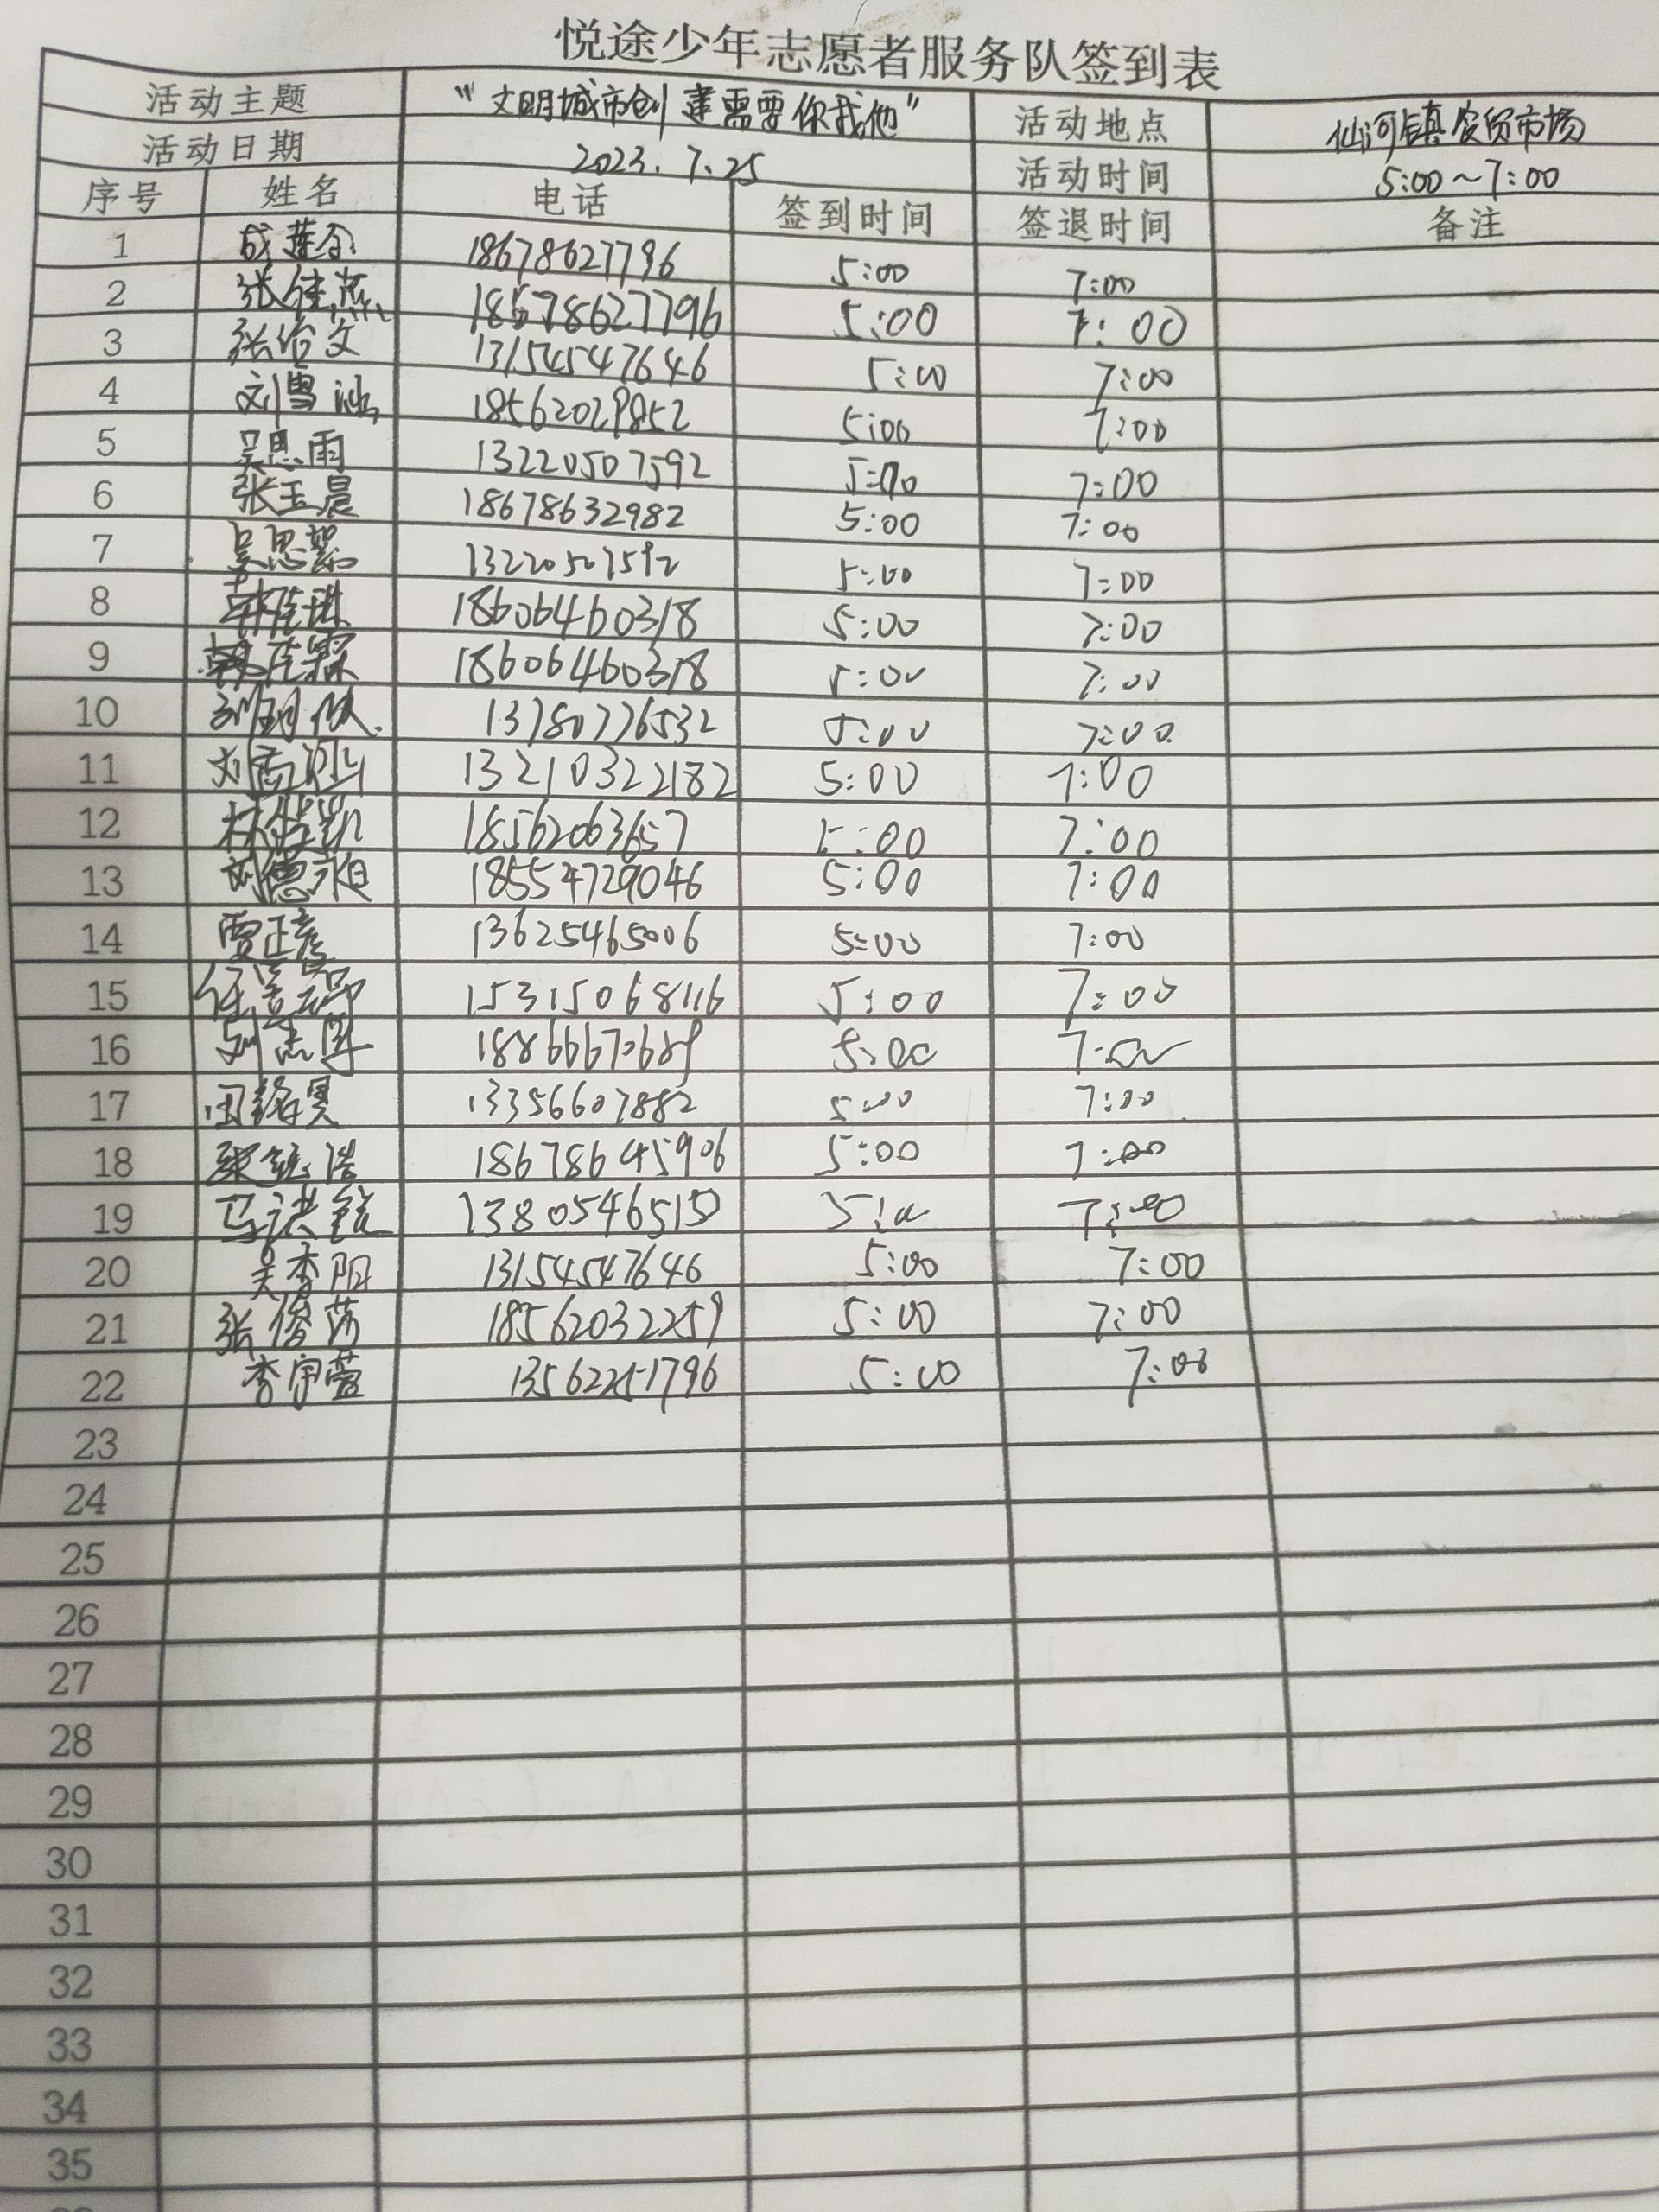 悦途少年志愿者服务队签到表
活动主题 "文明城市创建需要你我他" 活动地点 仙河镇农贸市场
活动日期 2023.7.25 活动时间 5:00~7:00
序号 姓名 电话 签到时间 签退时间 备注
1 成莲金 18678627796 5:00 7:00
2 张佳燕 18678627796 5:00 7:00
3 张俗文 13154547646 5:00 7:00
4 刘雪 18562029852 5:00 7:00
5 吴思雨 13220507592 5:00 7:00
6 张玉晨 18678632982 5:00 7:00
7 吴思 13220507592 5:00 7:00
8 韩佳琪 18606460318 5:00 7:00
9 韩佳霖 18606460318 5:00 7:00
10 13780776532 5:00 7:00
11 13210322182 5:00 7:00
12 林 凯 18562063657 5:00 7:00
13 刘德恒 18554729046 5:00 7:00
14 贾正彦 13625465006 5:00 7:00
15 任 15315068116 5:00 7:00
16 刘志 18866670689 5:00 7:00
17 田 昊 13356607882 5:00 7:00
18 浩 18678645906 5:00 7:00
19 马洪 5:00 7:00
20 吴李阳 13154547646 5:00 7:00
21 张俊莎 18562032259 5:00 7:00
22 李宇萱 13562251796 5:00 7:00
23
24
25
26
27
28
29
30
31
32
33
34
35